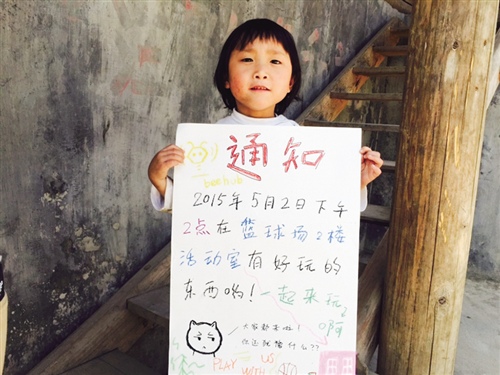 通知
2015年5月2日下午
2点在篮球场2楼
活动室有好玩的
东西哟！一起来玩
啊
大家都来啦！
你还犹豫什么??
PLAY
WITH
US